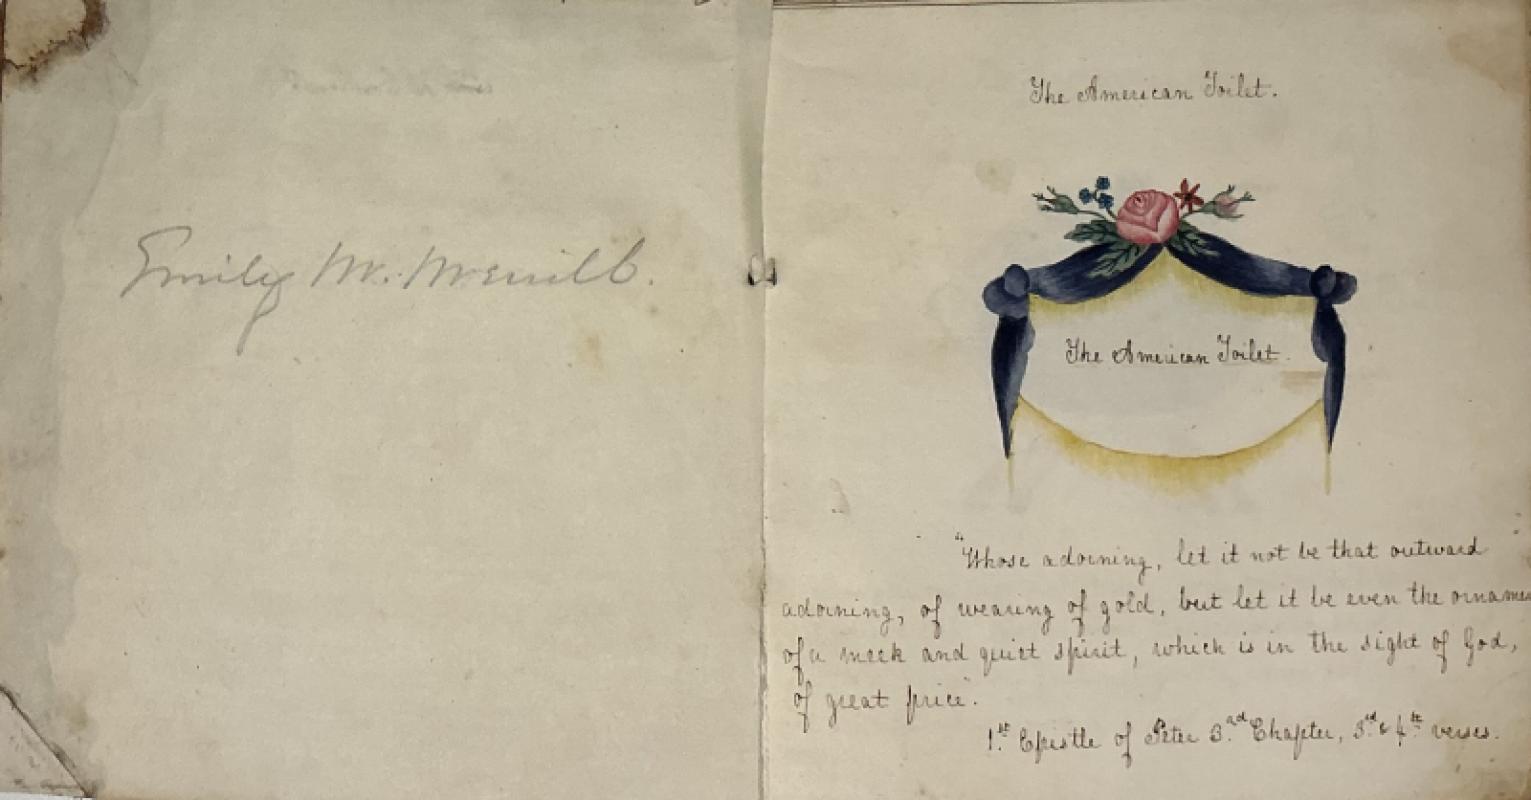 Emily M. Merrill.
The American Toilet.
The American Toilet.
"Whose adorning, let it not be that outward
adorning, of wearing of gold, but let it be even the orname
of a meek and quiet spirit, which is in the sight of God,
of great price".
1.st Epistle of Peter 3.rd Chapter, 3.rd & 4.th verses.